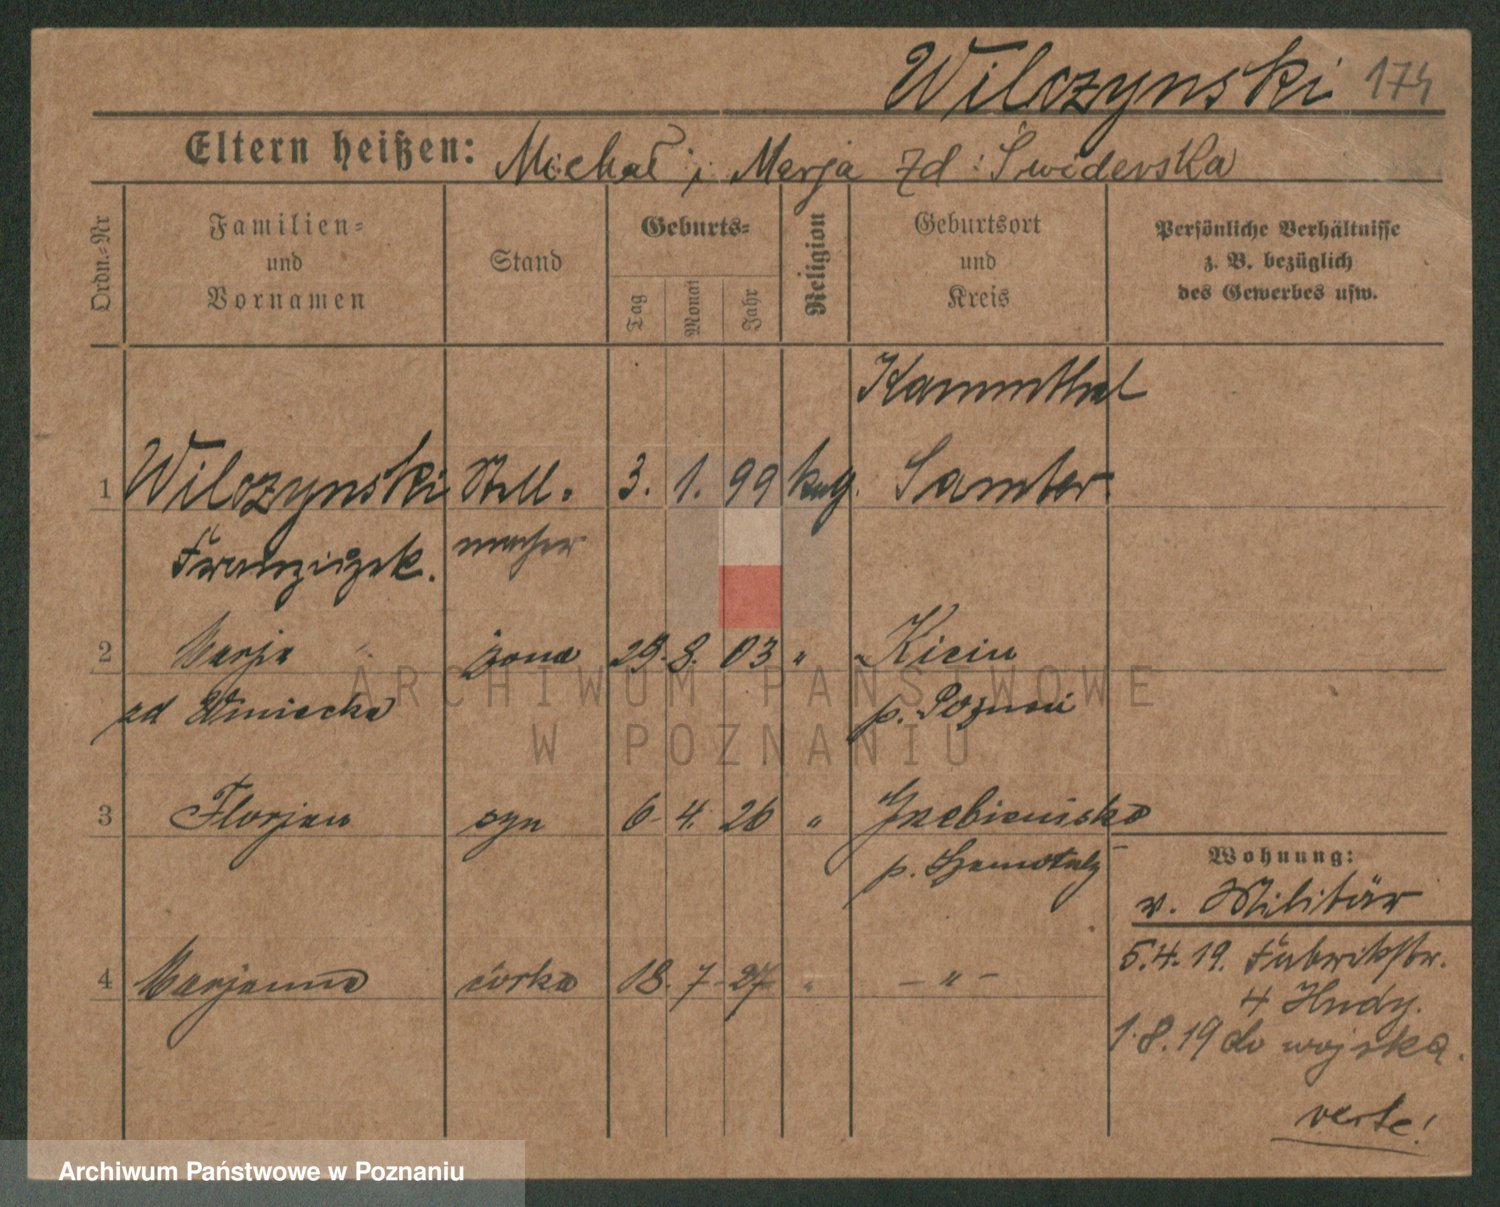 Wilczynski 174
Eltern heißen: Michał i Marja zd: Świderska
Ordn.-Nr
Familien-
und
Vornamen
Stand
Geburts-
Tag
Monat
Jahr
Religion
Geburtsort
und
Kreis
Persönliche Verhältnisse
z. B. bezüglich
des Gewerbes usw.
Kammthal
1 Wilczynski Stell- 3. 1. 99 Samter
Franziszek. macher
2 Marja żona 29. 8. 03 " Kicin
zd Winiecka p. Poznań
3 Florjan syn 6 4. 26 "
p. Szamotuły
4 Marjanna córka 18. 7. 27 " – " –
Wohnung:
v. Militär
5.4.19. Fabrikstr.
4
1.8.19 do wojska.
verte!
ARCHIWUM PAŃSTWOWE
W POZNANIU
Archiwum Państwowe w Poznaniu